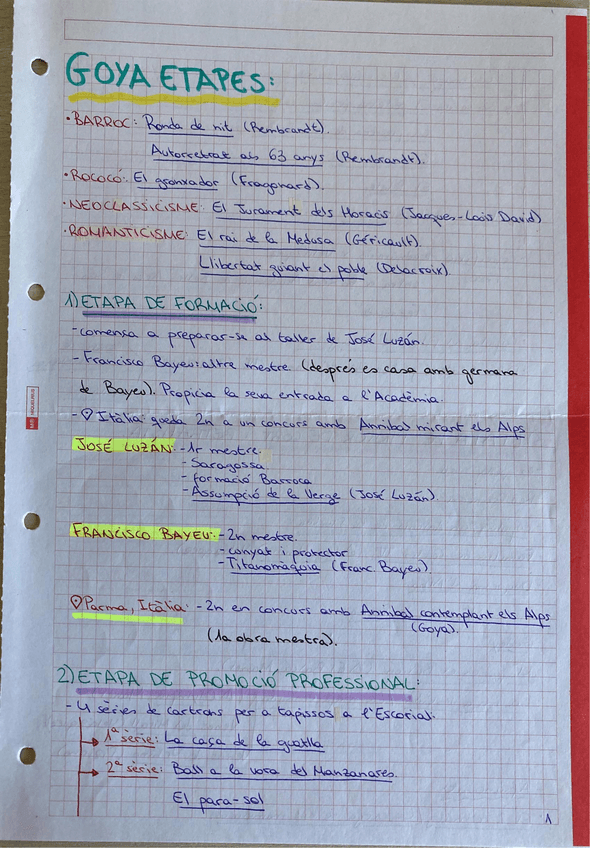 GOYA ETAPES:
• BARROC: Ronda de nit (Rembrandt).
Autorretrat als 63 anys (Rembrandt).
• ROCOCÓ: El gronxador (Fragonard).
• NEOCLASSICISME: El Jurament dels Horacis (Jacques-Louis David)
• ROMANTICISME: El rai de la Medusa (Géricault).
Llibertat guiant el poble (Delacroix).
1) ETAPA DE FORMACIÓ:
- comensa a preparar-se al taller de José Luzán.
- Francisco Bayeu: altre mestre. (després es casa amb germana
de Bayeu). Propicia la seva entrada a l'Acadèmia.
- Itàlia: queda 2n a un concurs amb Anníbal mirant els Alps
JOSÉ LUZÁN: - 1r mestre.
- Saragossa
- formació Barroca
- Assumpció de la Verge (José Luzán).
FRANCISCO BAYEU: - 2n mestre.
- cunyat i protector
- Titanomaquia (Franc. Bayeu).
Parma, Itàlia: - 2n en concurs amb Anníbal contemplant els Alps
(Goya).
(1a obra mestra).
2) ETAPA DE PROMOCIÓ PROFESSIONAL:
- 4 sèries de cartrons per a tapissos a l'Escorial:
1ª sèrie: La caça de la guatlla
2ª sèrie: Ball a la vora del Manzanares.
El para-sol
1